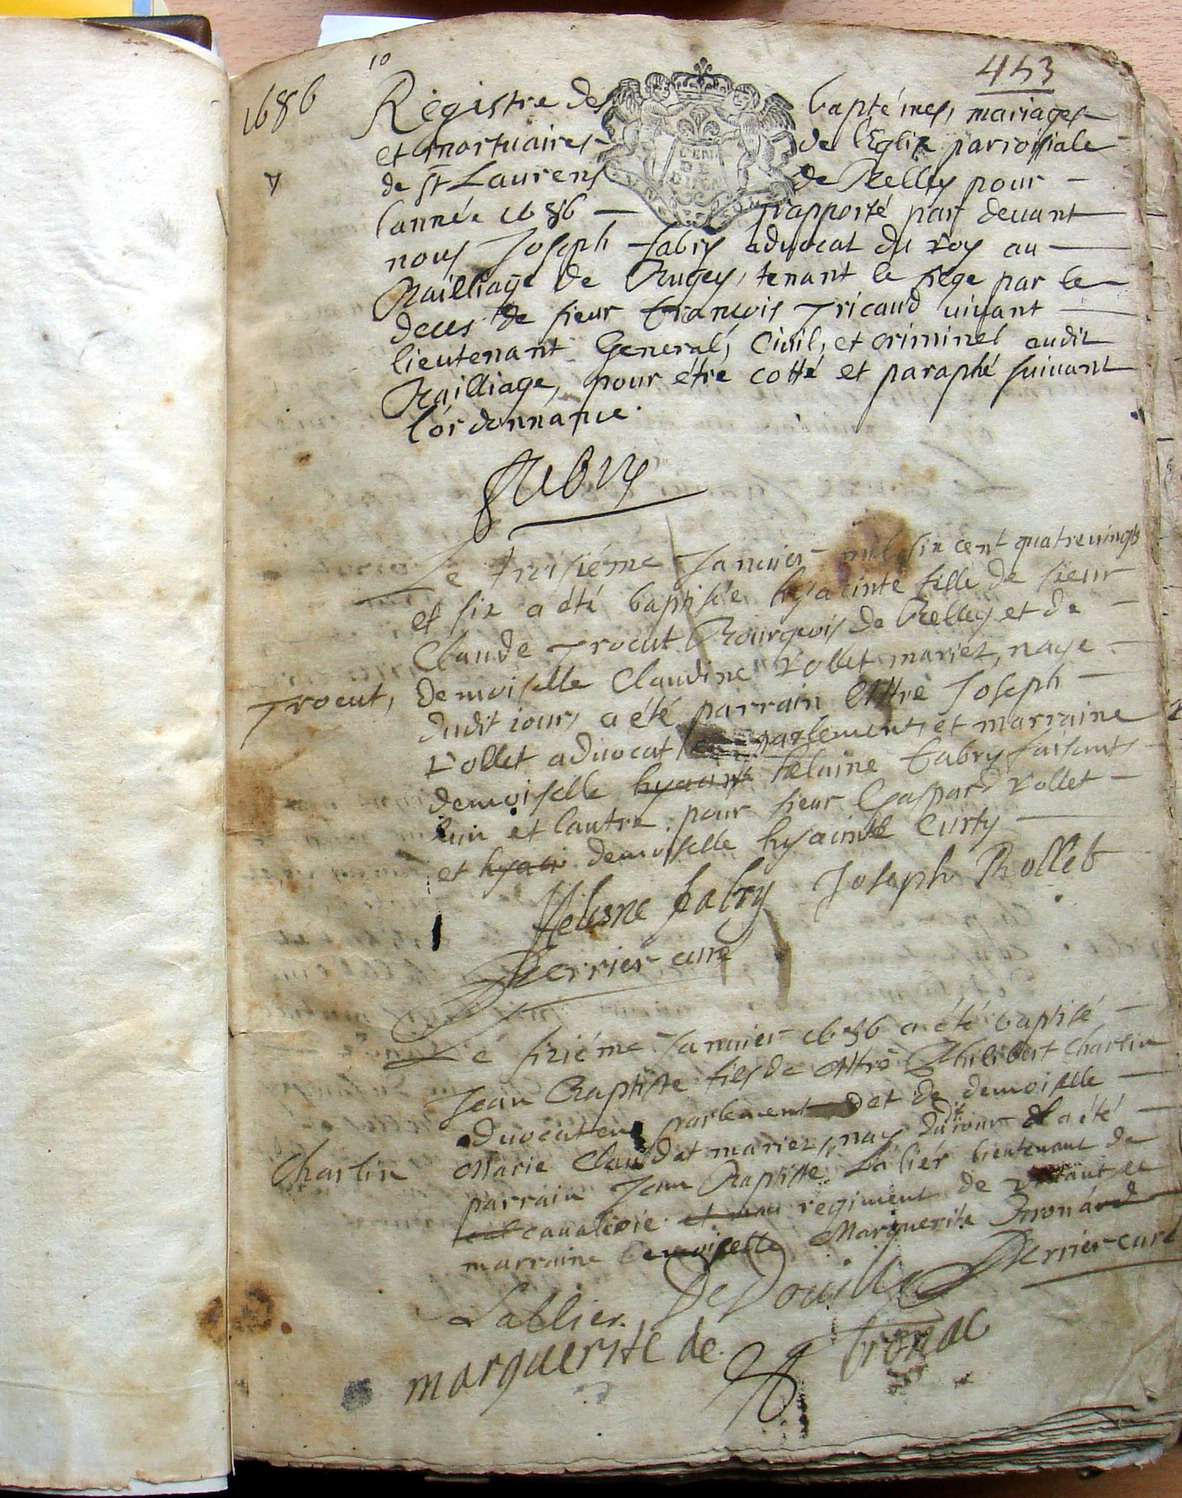 10
453
1686
Registre des baptémes, mariages
et mortuaires de l'Eglise parroissiale
de St Laurens de Belley pour
l'année 1686 rapporté par devant
nous Joseph fabry advocat du roy au
Bailliage de Bugey, tenant le siége par le
deces de sieur françois Tricaud vivant
lieutenant General, Civil, et criminel audit
Bailliage, pour étre cotté et paraphé suivant
l'ordonnance.
fabry
Le troisiéme Janvier mil six cent quatrevingts
et six a été baptisée hyacinte fille de sieur
Claude Trocut Bourgeois de Belley et de
Trocut,
demoiselle Claudine rollet mariez, naye
dudit jour, a été parrain Mtre Joseph
rollet advocat parlement, et marraine
demoiselle hyacint helaine fabry faisants
lun et lautre pour sieur Gaspard rollet
et hyaci demoiselle hyacinte Curty
Helesne fabry Joseph Rollet
Perrier curé
Le siziéme Janvier 1686 a été baptisé
Jean Baptiste fils de Mtre Philibert Charlin
advocat en parlement et de demoiselle
Charlin
Marie Claudet mariez, nay dudit jour a été
parrain Jean Baptiste Lablier lieutenant de
cavalerie regiment de
marraine demoiselle Marguerite
Lablier De Perrier curé
marguerite de